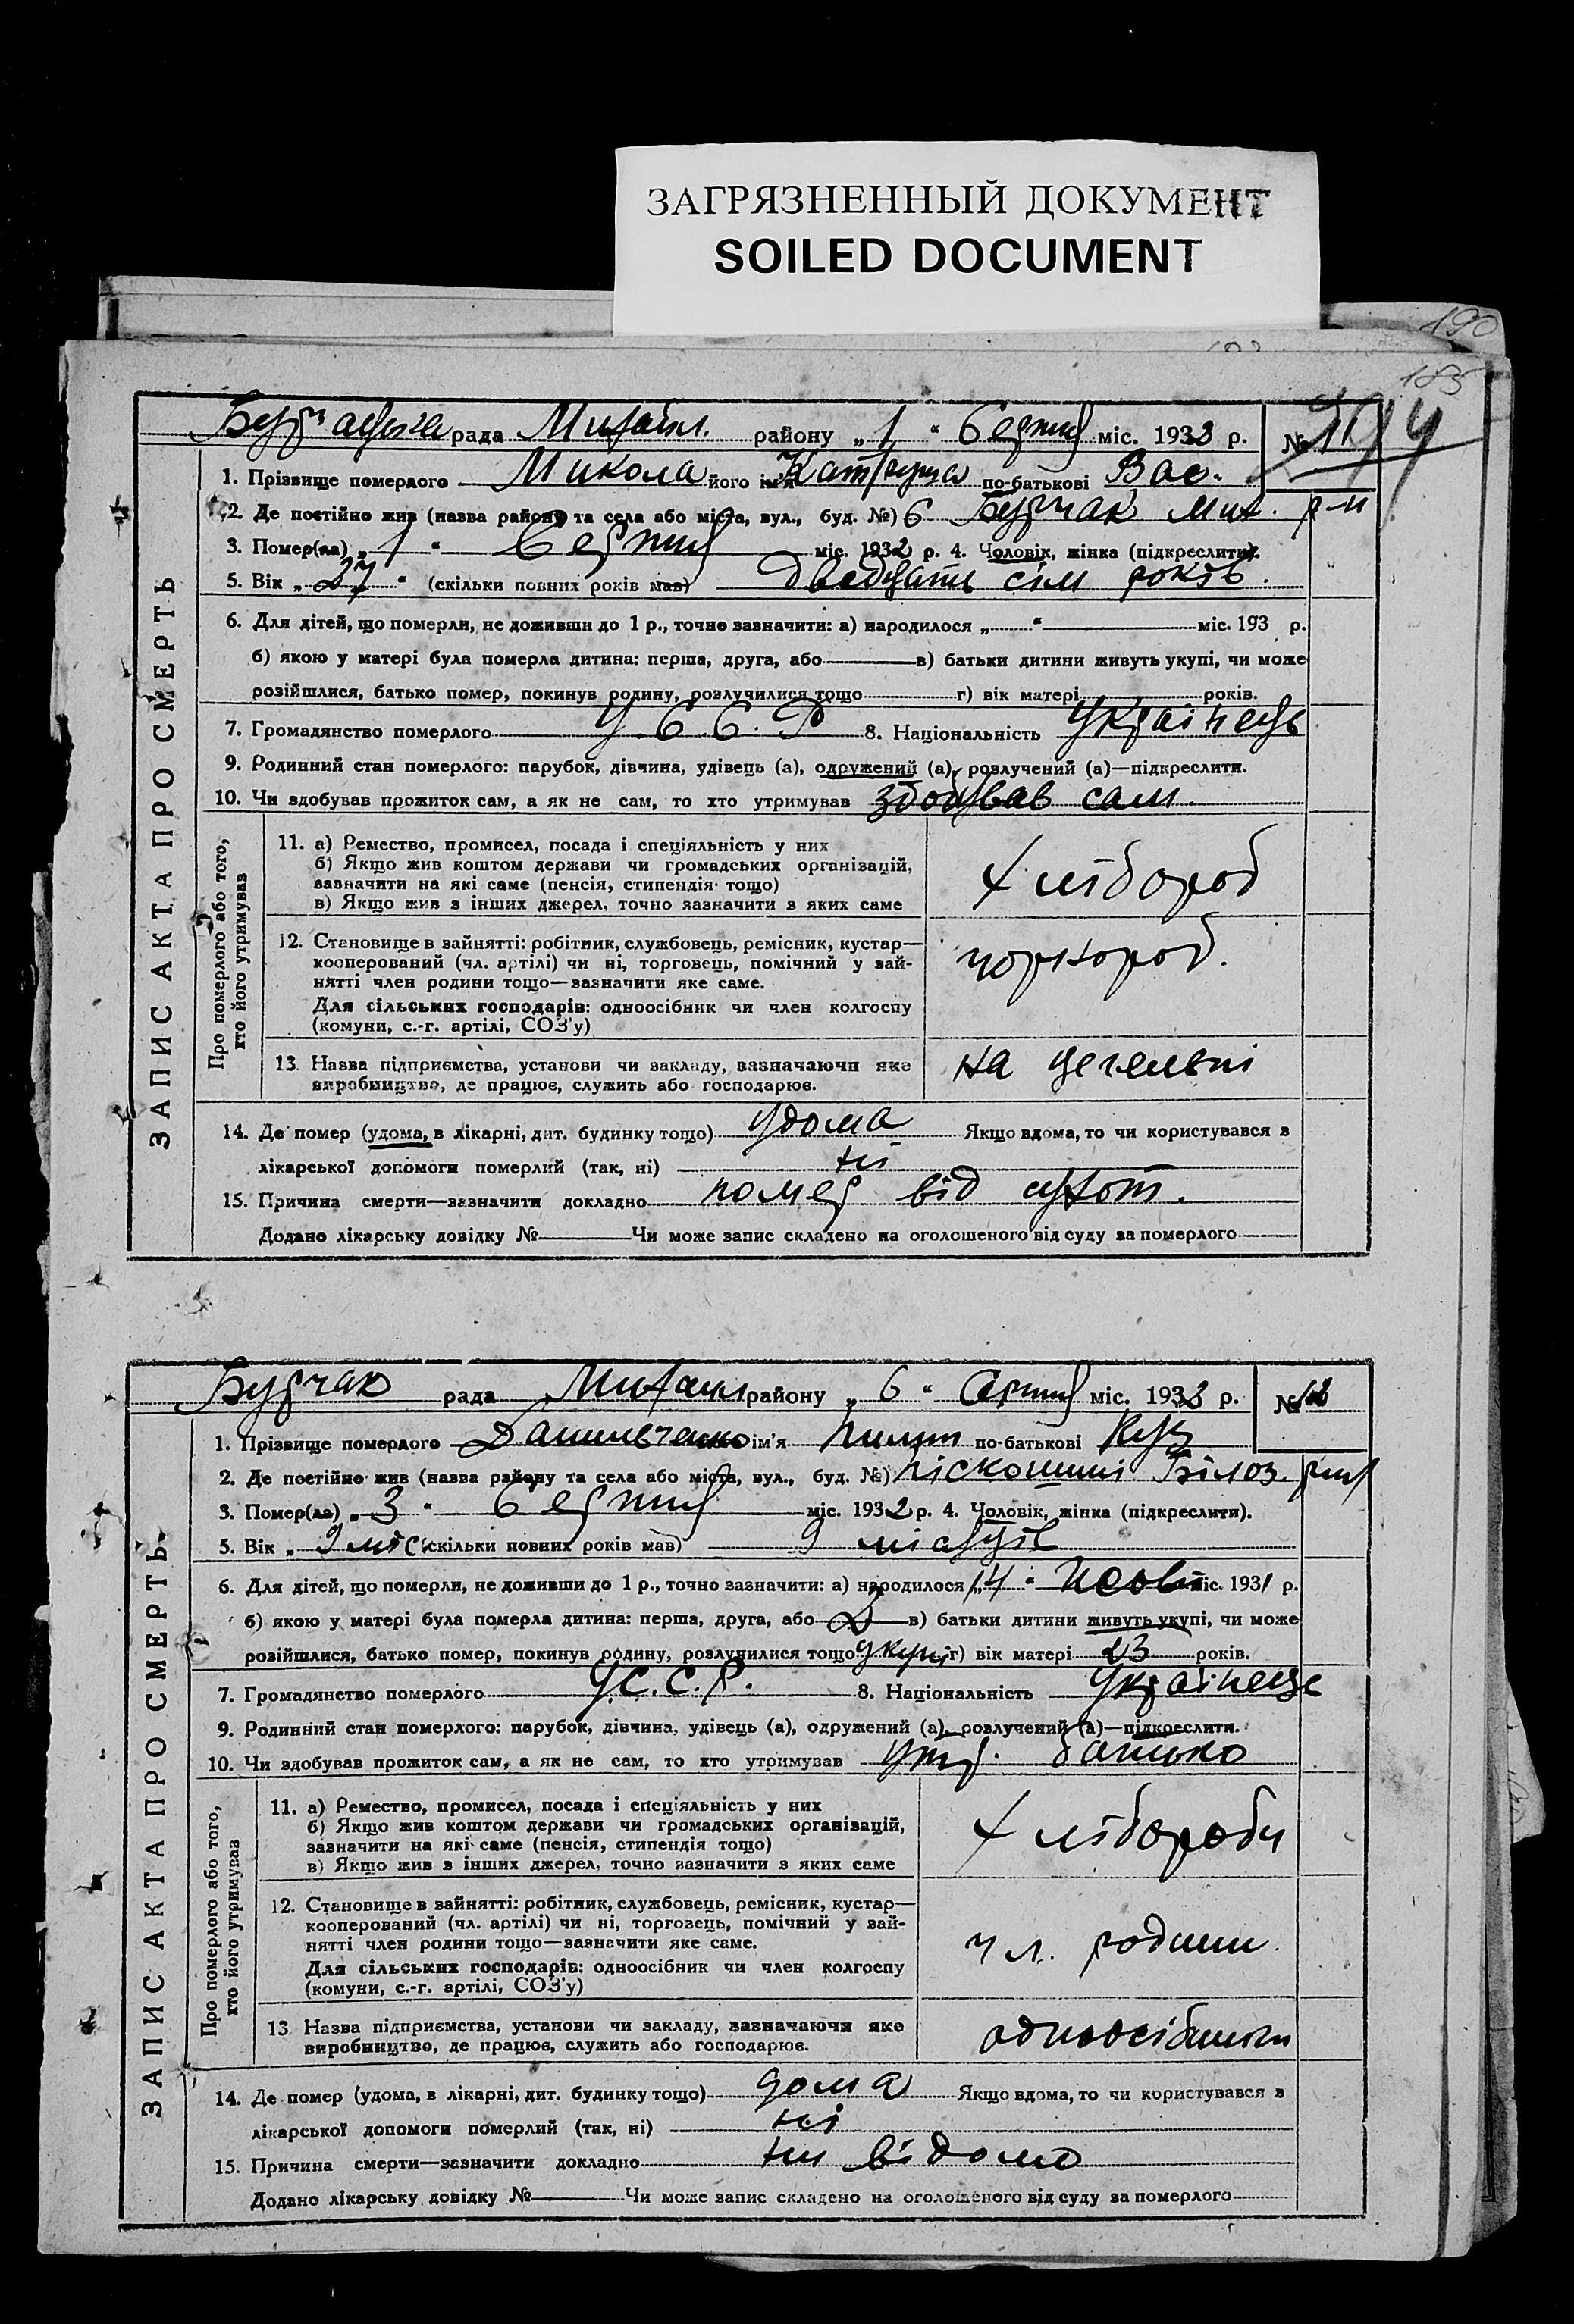 ЗАГРЯЗНЕННЫЙ ДОКУМЕНТ
SOILED DOCUMENT
190
185
рада Михайл. району „ 1 “ Серпня міс. 1932 р. №
1. Прізвище померлого Микола його ім'я по-батькові Вас.
2. Де постійно жив (назва району та села або міста, вул., буд. №) с Бурчак Мих. р-н
3. Помер(ла) „ 1 “ Серпня міс. 1932 р. 4. Чоловік, жінка (підкреслити).
5. Вік „ 27 “ (скільки повних років мав) двадцать сім років.
6. Для дітей, що померли, не доживши до 1 р., точно зазначити: а) народилося „ “ міс. 193 р.
б) якою у матері була померла дитина: перша, друга, або в) батьки дитини живуть укупі, чи може
розійшлися, батько помер, покинув родину, розлучилися тощо г) вік матері років.
7. Громадянство померлого У.С.С.Р 8. Національність Українець
9. Родинний стан померлого: парубок, дівчина, удівець (а), одружений (а), розлучений (а)—підкреслити.
10. Чи здобував прожиток сам, а як не сам, то хто утримував здобував сам.
ЗАПИС АКТА ПРО СМЕРТЬ
Про померлого або того, хто його утримував
11. а) Ремество, промисел, посада і спеціяльність у них
б) Якщо жив коштом держави чи громадських організацій,
зазначити на які саме (пенсія, стипендія тощо)
в) Якщо жив з інших джерел, точно зазначити з яких саме
хлібороб
12. Становище в зайнятті: робітник, службовець, ремісник, кустар—
кооперований (чл. артілі) чи ні, торговець, помічний у зай-
нятті член родини тощо—зазначити яке саме.
Для сільських господарів: одноосібник чи член колгоспу
(комуни, с.-г. артілі, СОЗ'у)
чорнороб.
13. Назва підприємства, установи чи закладу, зазначаючи яке
виробництво, де працює, служить або господарює.
на цегельні
14. Де помер (удома, в лікарні, дит. будинку тощо) удома Якщо вдома, то чи користувався з
лікарської допомоги померлий (так, ні) ні
15. Причина смерти—зазначити докладно помер від сухот.
Додано лікарську довідку № Чи може запис складено на оголошеного від суду за померлого
Бурчак рада Михайл району „ 6 “ Серпня міс. 1932 р. № 12
1. Прізвище померлого Данильченко ім'я Пилип по-батькові Куз
2. Де постійно жив (назва району та села або міста, вул., буд. №) Білоз.
3. Помер(ла) „ 3 “ Серпня міс. 1932 р. 4. Чоловік, жінка (підкреслити).
5. Вік „ 9 міс (скільки повних років мав) 9 місяців
6. Для дітей, що померли, не доживши до 1 р., точно зазначити: а) народилося „ 14 “ міс. 1931 р.
б) якою у матері була померла дитина: перша, друга, або 2 в) батьки дитини живуть укупі, чи може
розійшлися, батько помер, покинув родину, розлучилися тощо укупі г) вік матері 23 років.
7. Громадянство померлого У.С.С.Р. 8. Національність Українець
9. Родинний стан померлого: парубок, дівчина, удівець (а), одружений (а), розлучений (а)—підкреслити.
10. Чи здобував прожиток сам, а як не сам, то хто утримував утр. батько
ЗАПИС АКТА ПРО СМЕРТЬ
Про померлого або того, хто його утримував
11. а) Ремество, промисел, посада і спеціяльність у них
б) Якщо жив коштом держави чи громадських організацій,
зазначити на які саме (пенсія, стипендія тощо)
в) Якщо жив з інших джерел, точно зазначити з яких саме
хлібороби
12. Становище в зайнятті: робітник, службовець, ремісник, кустар—
кооперований (чл. артілі) чи ні, торговець, помічний у зай-
нятті член родини тощо—зазначити яке саме.
Для сільських господарів: одноосібник чи член колгоспу
(комуни, с.-г. артілі, СОЗ'у)
чл. родини
13. Назва підприємства, установи чи закладу, зазначаючи яке
виробництво, де працює, служить або господарює.
одноосібники
14. Де помер (удома, в лікарні, дит. будинку тощо) дома Якщо вдома, то чи користувався з
лікарської допомоги померлий (так, ні) ні
15. Причина смерти—зазначити докладно ни відомо
Додано лікарську довідку № Чи може запис складено на оголошеного від суду за померлого